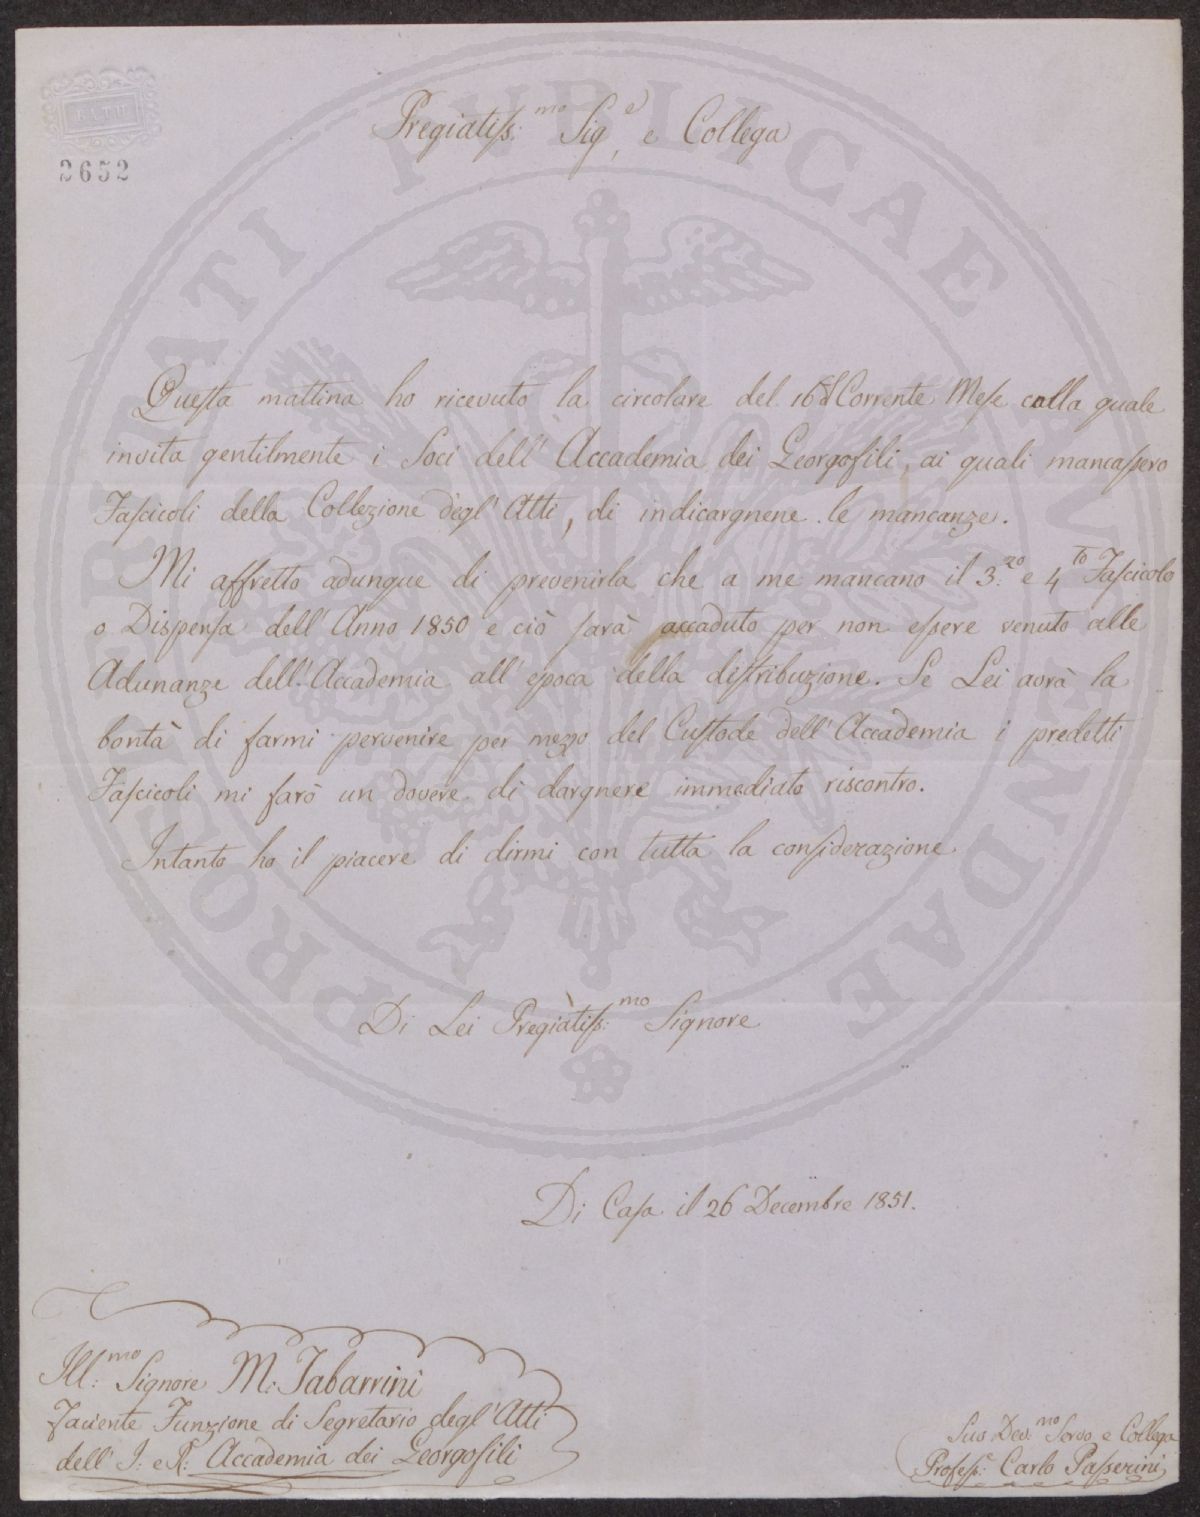 BATH
2652
Pregiatiss:mo Sig.e e Collega
Questa mattina ho ricevuto la circolare del 16 Corrente Mese colla quale
invita gentilmente i Soci dell' Accademia dei Georgofili, ai quali mancassero
Fascicoli della Collezione degl' Atti, di indicargnene le mancanze.
Mi affretto adunque di prevenirla che a me mancano il 3.zo e 4to Fascicolo
o Dispensa dell' Anno 1850 e ciò sarà accaduto per non essere venuto alle
Adunanze dell' Accademia all' epoca della distribuzione. Se Lei avrà la
bontà di farmi pervenire per mezzo del Custode dell' Accademia i predetti
Fascicoli mi farò un dovere di dargnene immediato riscontro.
Intanto ho il piacere di dirmi con tutta la considerazione
Di Lei Pregiatiss:mo Signore
Di Casa il 26 Decembre 1851.
Ill:mo Signore M. Tabarrini
Faciente Funzione di Segretario degl' Atti
dell' I. e R. Accademia dei Georgofili
Suo Dev:mo Servo e Collega
Profess. Carlo Passerini
PROSPERITATI PUBLICAE AUGENDAE